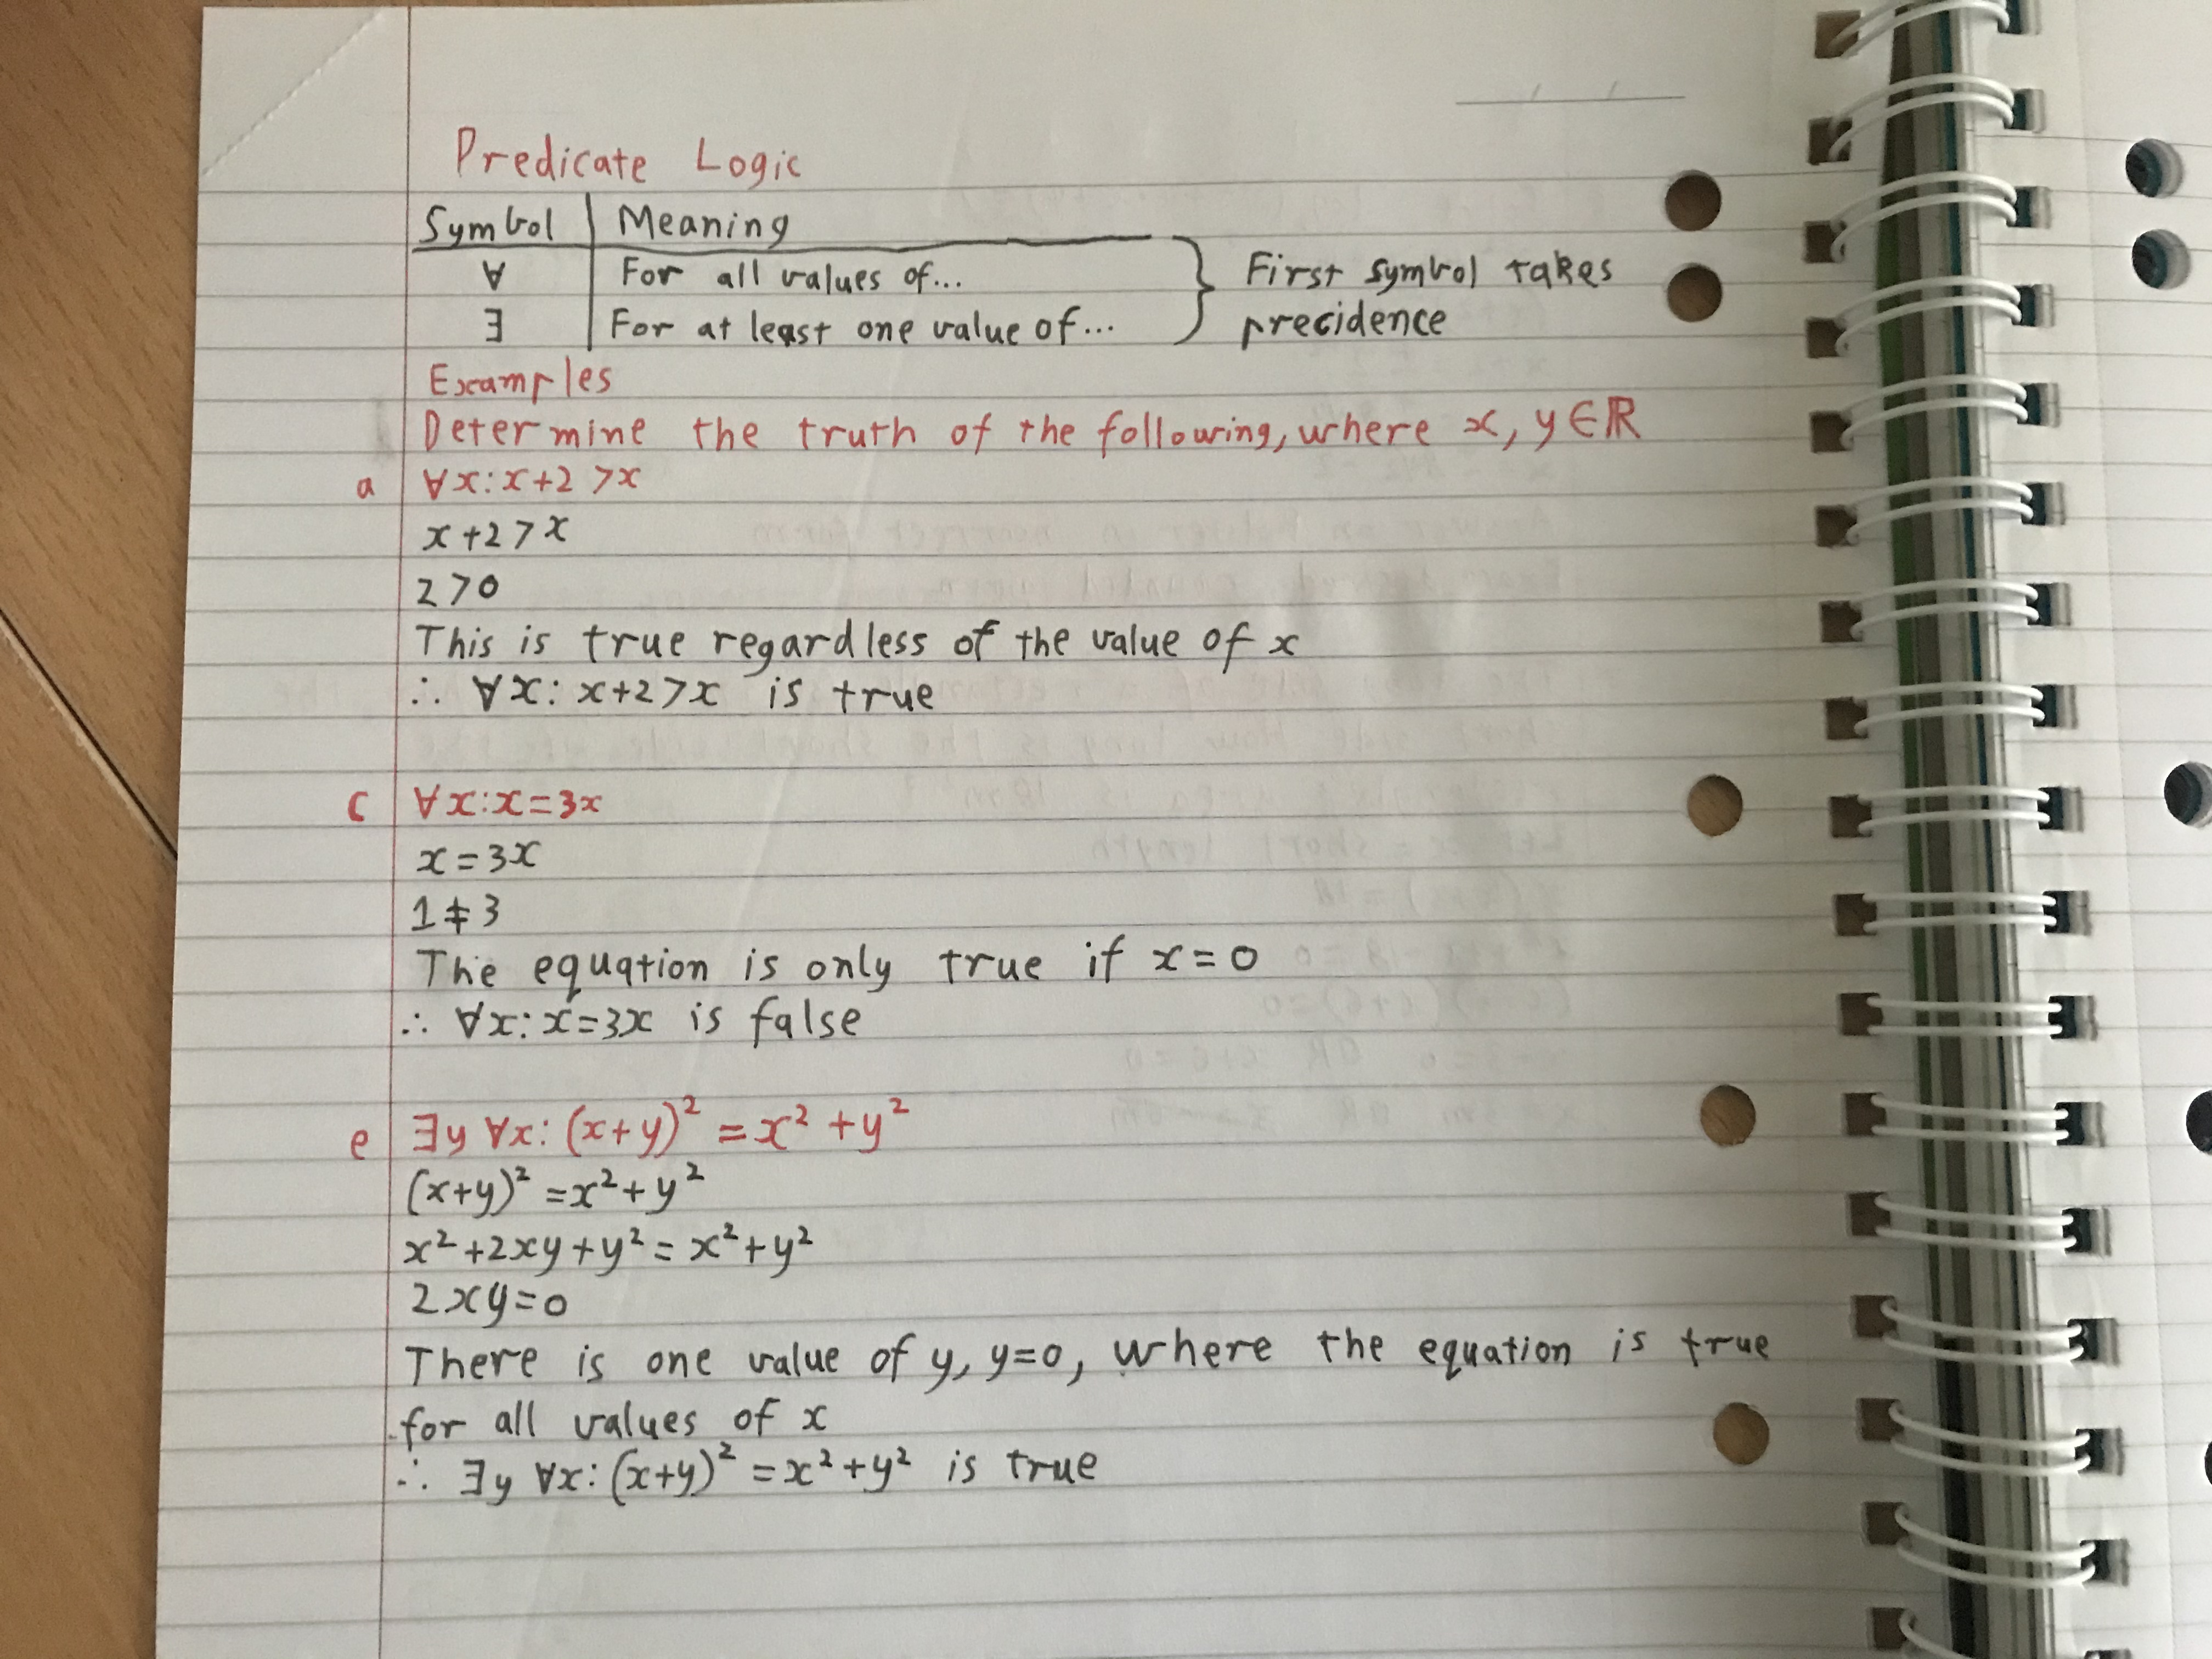 Predicate Logic
Symbol Meaning
∀ For all values of...
∃ For at least one value of...
First symbol takes
precidence
Examples
Determine the truth of the following, where x, y ∈ ℝ
a ∀x: x+2 > x
x+2 > x
2 > 0
This is true regardless of the value of x
∴ ∀x: x+2 > x is true
c ∀x: x=3x
x=3x
1≠3
The equation is only true if x=0
∴ ∀x: x=3x is false
e ∃y ∀x: (x+y)² = x² + y²
(x+y)² = x² + y²
x² + 2xy + y² = x² + y²
2xy=0
There is one value of y, y=0, where the equation is true
for all values of x
∴ ∃y ∀x: (x+y)² = x² + y² is true